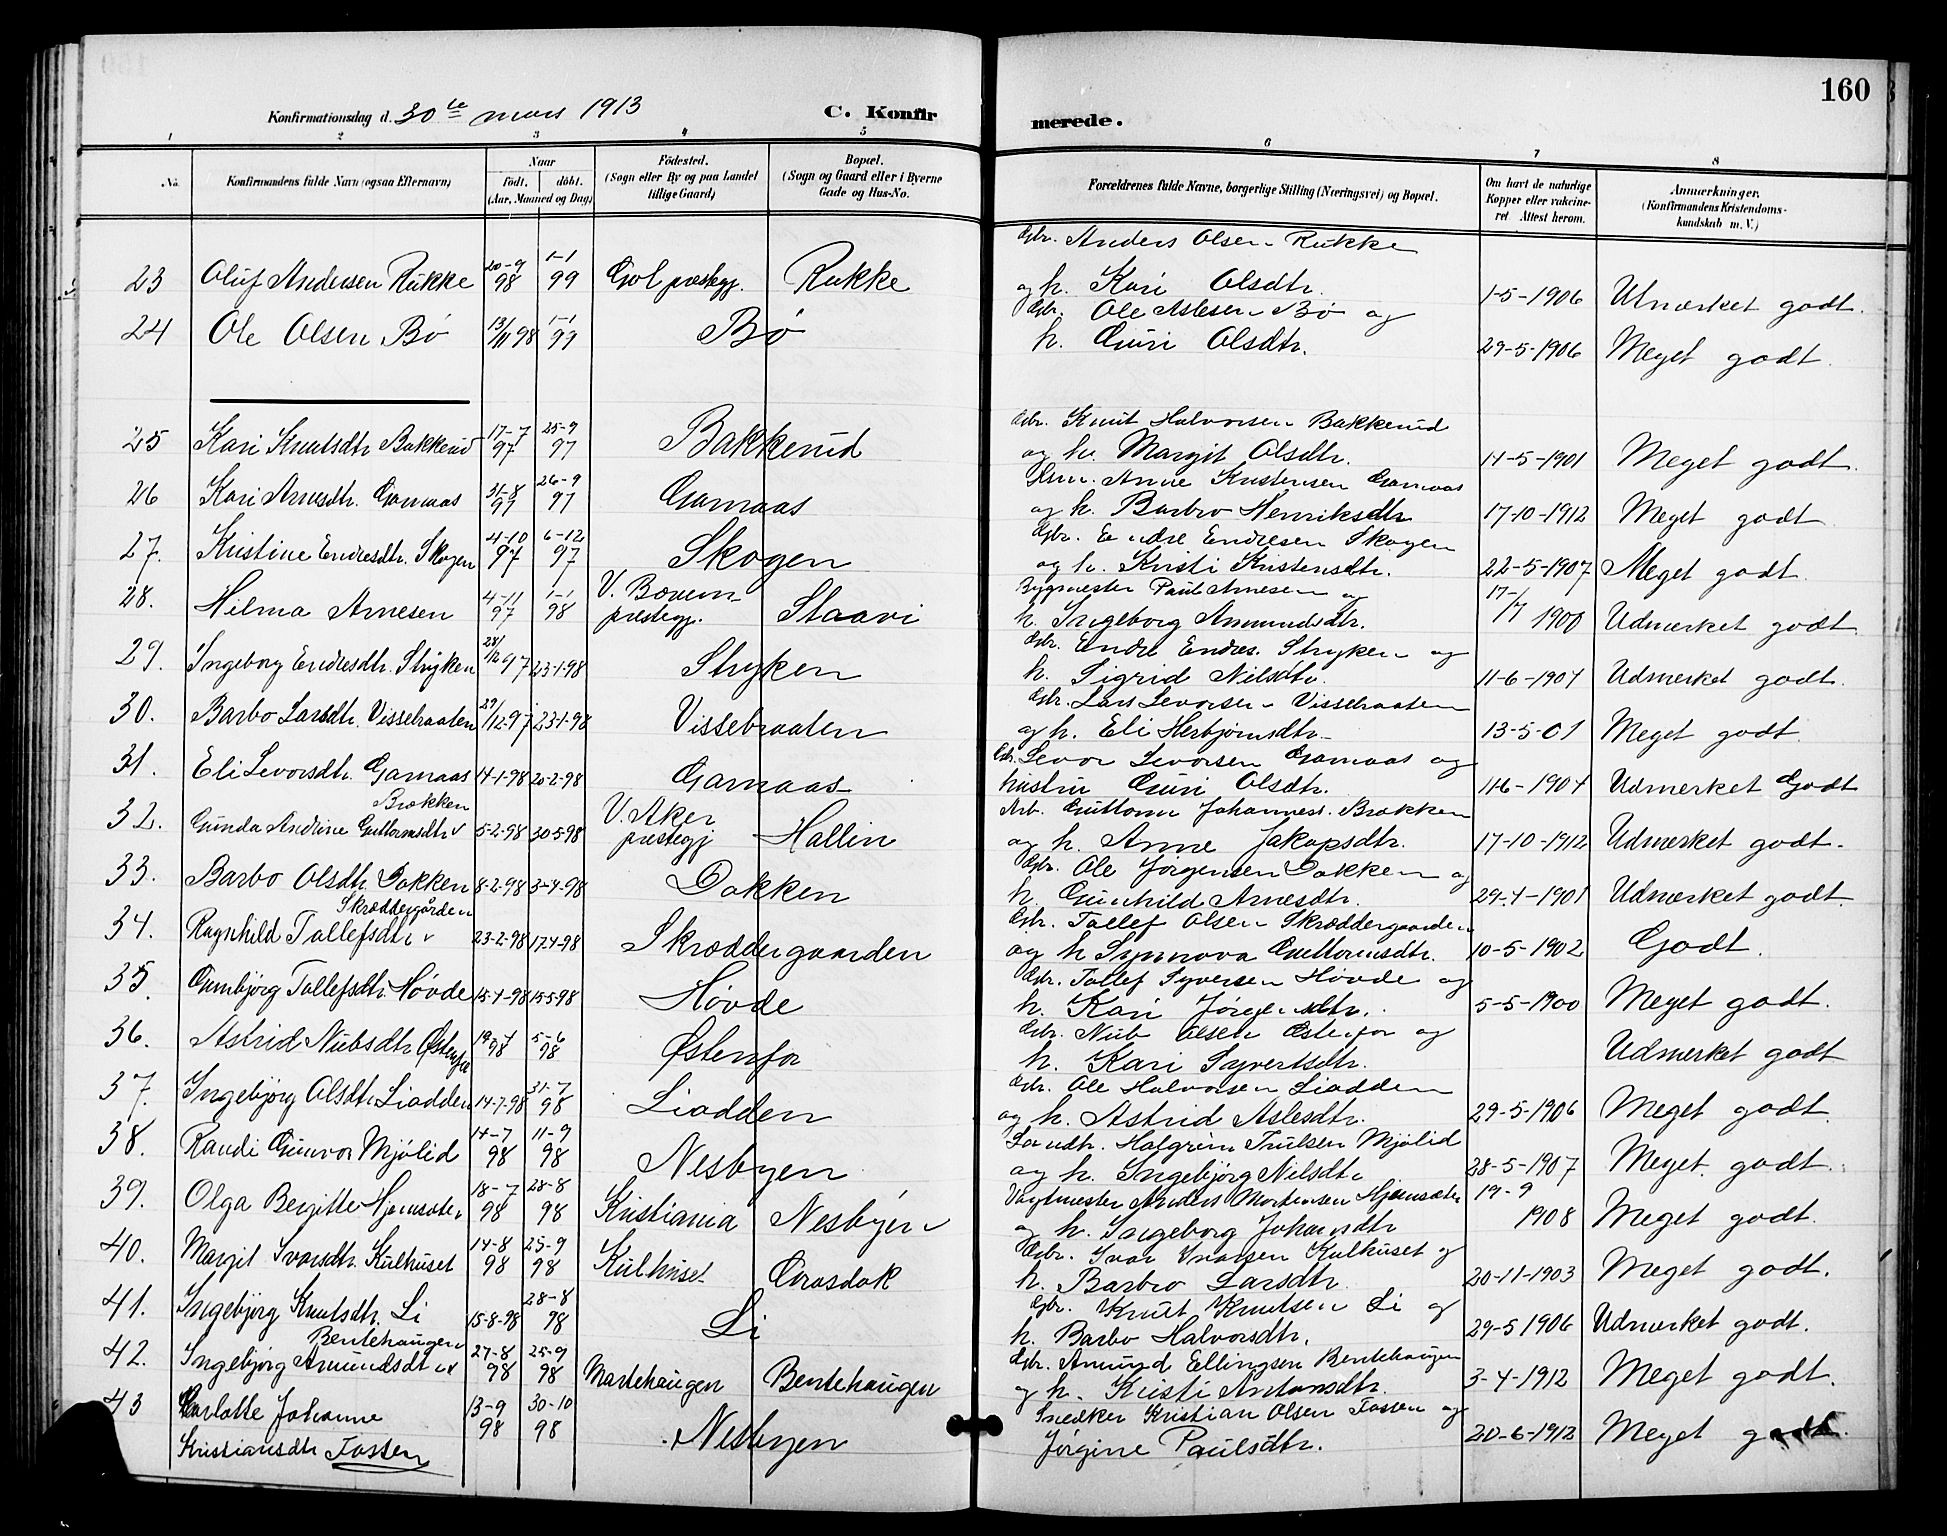 160
Konfirmationsdag d. 30te mars 1913 C. Konfir merede.
1 2 3 4 5 6 7 8
No. Konfirmandens fulde Navn (ogsaa Efternavn) Naar födt. döbt. (Aar, Maaned og Dag) Födested. (Sogn eller By og paa Landet tillige Gaard) Bopæl. (Sogn og Gaard eller i Byerne Gade og Hus-No. Forældrenes fulde Navne, borgerlige Stilling (Næringsvei) og Bopæl. Om havt de naturlige Kopper eller vakcineret Attest herom. Anmærkninger, (Konfirmandens Kristendomskundskab m. V.)
Gbr. Anders Olsen Rukke
23 Oluf Andersen Rukke 20-9 98 1-1 99 Gol prestegj. Rukke og h. Kari Olsdtr. 1-5-1906 Utmerket godt.
Gbr. Ole Aslesen Bø og
24 Ole Olsen Bø 13/11 98 1-1 99 Bø h. Guri Olsdtr. 29-5-1906 Meget godt.
Gbr. Knut Halvorsen Bakkerud
25 Kari Knutsdtr Bakkerud 17-7 97 25-9 97 Bakkerud og h. Margit Olsdtr. 14-5-1901 Meget godt.
Arne Kristensen Garnaas
26 Kari Arnesdtr. Garnaas 31-8 97 26-9 97 Garnaas og h. Barbro Henriksdtr 17-10-1912 Meget godt
Gbr. Endre Endresen Skogen
27. Kristine Endresdtr. Skogen 4-10 97 6-12 97 Skogen og h. Kristi Kristensdtr. 22-5-1907 Meget godt.
Bygmester Paul Arnesen og
28. Hilma Arnesen 4-11 97 1-1 98 V. Bærum prestegj. Staavi h. Ingeborg Amundsdtr. 17-/7 1900 Udmerket godt.
Gbr. Endre Endres. Stryken og
29. Ingeborg Endresdtr. Stryken 28/12 97 23-1-98 Stryken h. Sigrid Nilsdtr. 11-6-1904 Udmerket godt.
Gbr. Lars Levorsen Visselraaten
30. Barbo Larsdtr. Visselraaten 29/12-97 23-1-98 Vissebraaten og h. Eli Herbjørnsdtr 13-5-01 Meget godt.
Gbr. Levor Levorsen Garnaas og
31. Eli Levorsdtr. Garnaas 14-1-98 20-2-98 Garnaas hustru Guri Olsdtr. 11-6-1904 Udmerket Godt
Brækken Arb. Guttorm Johannes. Brækken
32. Gunda Andrine Guttormsdtr 5-2-98 30-5-98 V. Aker prestegj Hallin og h. Anne Jakopsdtr. 17-10-1912 Udmerket godt.
Gbr. Ole Jørgensen Dokken og
33. Barbo Olsdtr. Dokken 8-2-98 3-4-98 Dokken h. Gunhild Arnesdtr. 29-4-1901 Udmerket godt.
Skræddergården Gbr. Tollef Olsen Skræddergaarden
34. Ragnhild Tollefsdtr 23-2-98 17-4-98 Skræddergaarden og h Synnøva Guttormsdtr. 10-5-1902 Godt.
Gbr. Tollef Syversen Hovde og
35. Gunbjörg Tollefsdtr. Hovde 15-4-98 15-5-98 Hovde h. Kari Jørgensdtr. 5-5-1900 Meget godt.
Gbr. Nub Olsen Østenfor og
36. Astrid Nubsdtr Østenfor 19-4 98 5-6 98 Østenfor h. Kari Syvertsdtr. Udmerket godt
Gbr. Ole Halvorsen Liodden
37. Ingebjörg Olsdtr Liodden 14-7-98 31-7 98 Liodden og h. Astrid Aslesdtr. 29-5-1906 Meget godt.
Landh. Halgrim Trulsen Mjölid
38. Randi Gunvor Mjölid 14-7 98 11-9 98 Nesbyen og h. Ingebjörg Nilsdtr 28-5-1907 Meget godt.
Vagtmester Anders Mortensen Hjemsæter
39. Olga Bergitte Hjemsæter 18-7 98 28-8 98 Kristiania Nesbyen og h. Ingeborg Johansdtr 19-9 1908 Meget godt.
Gbr. Ivar Ivarsen Kulhuset og
40. Margit Ivarsdtr. Kulhuset 14-8 98 25-9 98 Kulhuset Grosdok h. Barbro Larsdtr. 20-11-1903 Meget godt.
Gbr. Knut Knutsen Li og
41. Ingebjörg Knutsdtr. Li 15-8-98 28-8 98 Li h. Barbo Halvorsdtr. 29-5 1906 Udmerket godt.
Bentehaugen Gbr. Amund Ellingsen Bentehaugen
42. Ingebjörg Amundsdtr 27-8 98 25-9 98 Martehaugen Bentehaugen og h. Kristi Antonsdtr. 3-4-1912 Meget godt.
Snedker Kristian Olsen Tossen og
43 Carlotte Johanne 13-9 98 30-10 98 Nesbyen Jörgine Paulsdtr. 20-6-1912 Meget godt.
Kristiansdtr Tossen